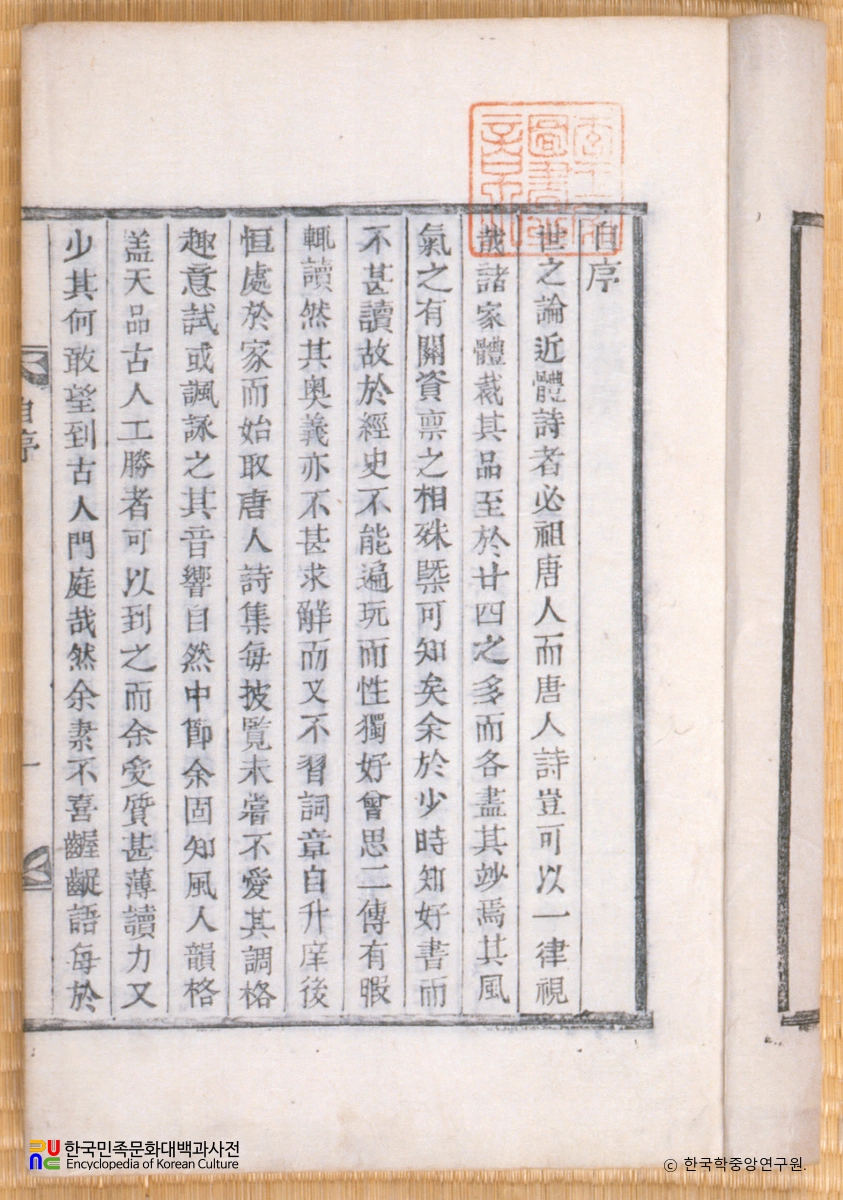 自序
世之論近體詩者必祖唐人而唐人詩豈可以一律視
哉諸家體裁其品至於廿四之多而各盡其妙焉其風
氣之有關資稟之相殊槩可知矣余於少時知好書而
不甚讀故於經史不能遍玩而性獨好曾思二傳有暇
輒讀然其奧義亦不甚求解而又不習詞章自升庠後
恒處於家而始取唐人詩集每披覽未嘗不愛其調格
趣意試或諷詠之其音響自然中節余固知風人韻格
盖天品古人工勝者可以到之而余愛質甚薄讀力又
少其何敢望到古人門庭哉然余素不喜齷齪語每於
自序
一
한국민족문화대백과사전
Encyclopedia of Korean Culture
© 한국학중앙연구원.